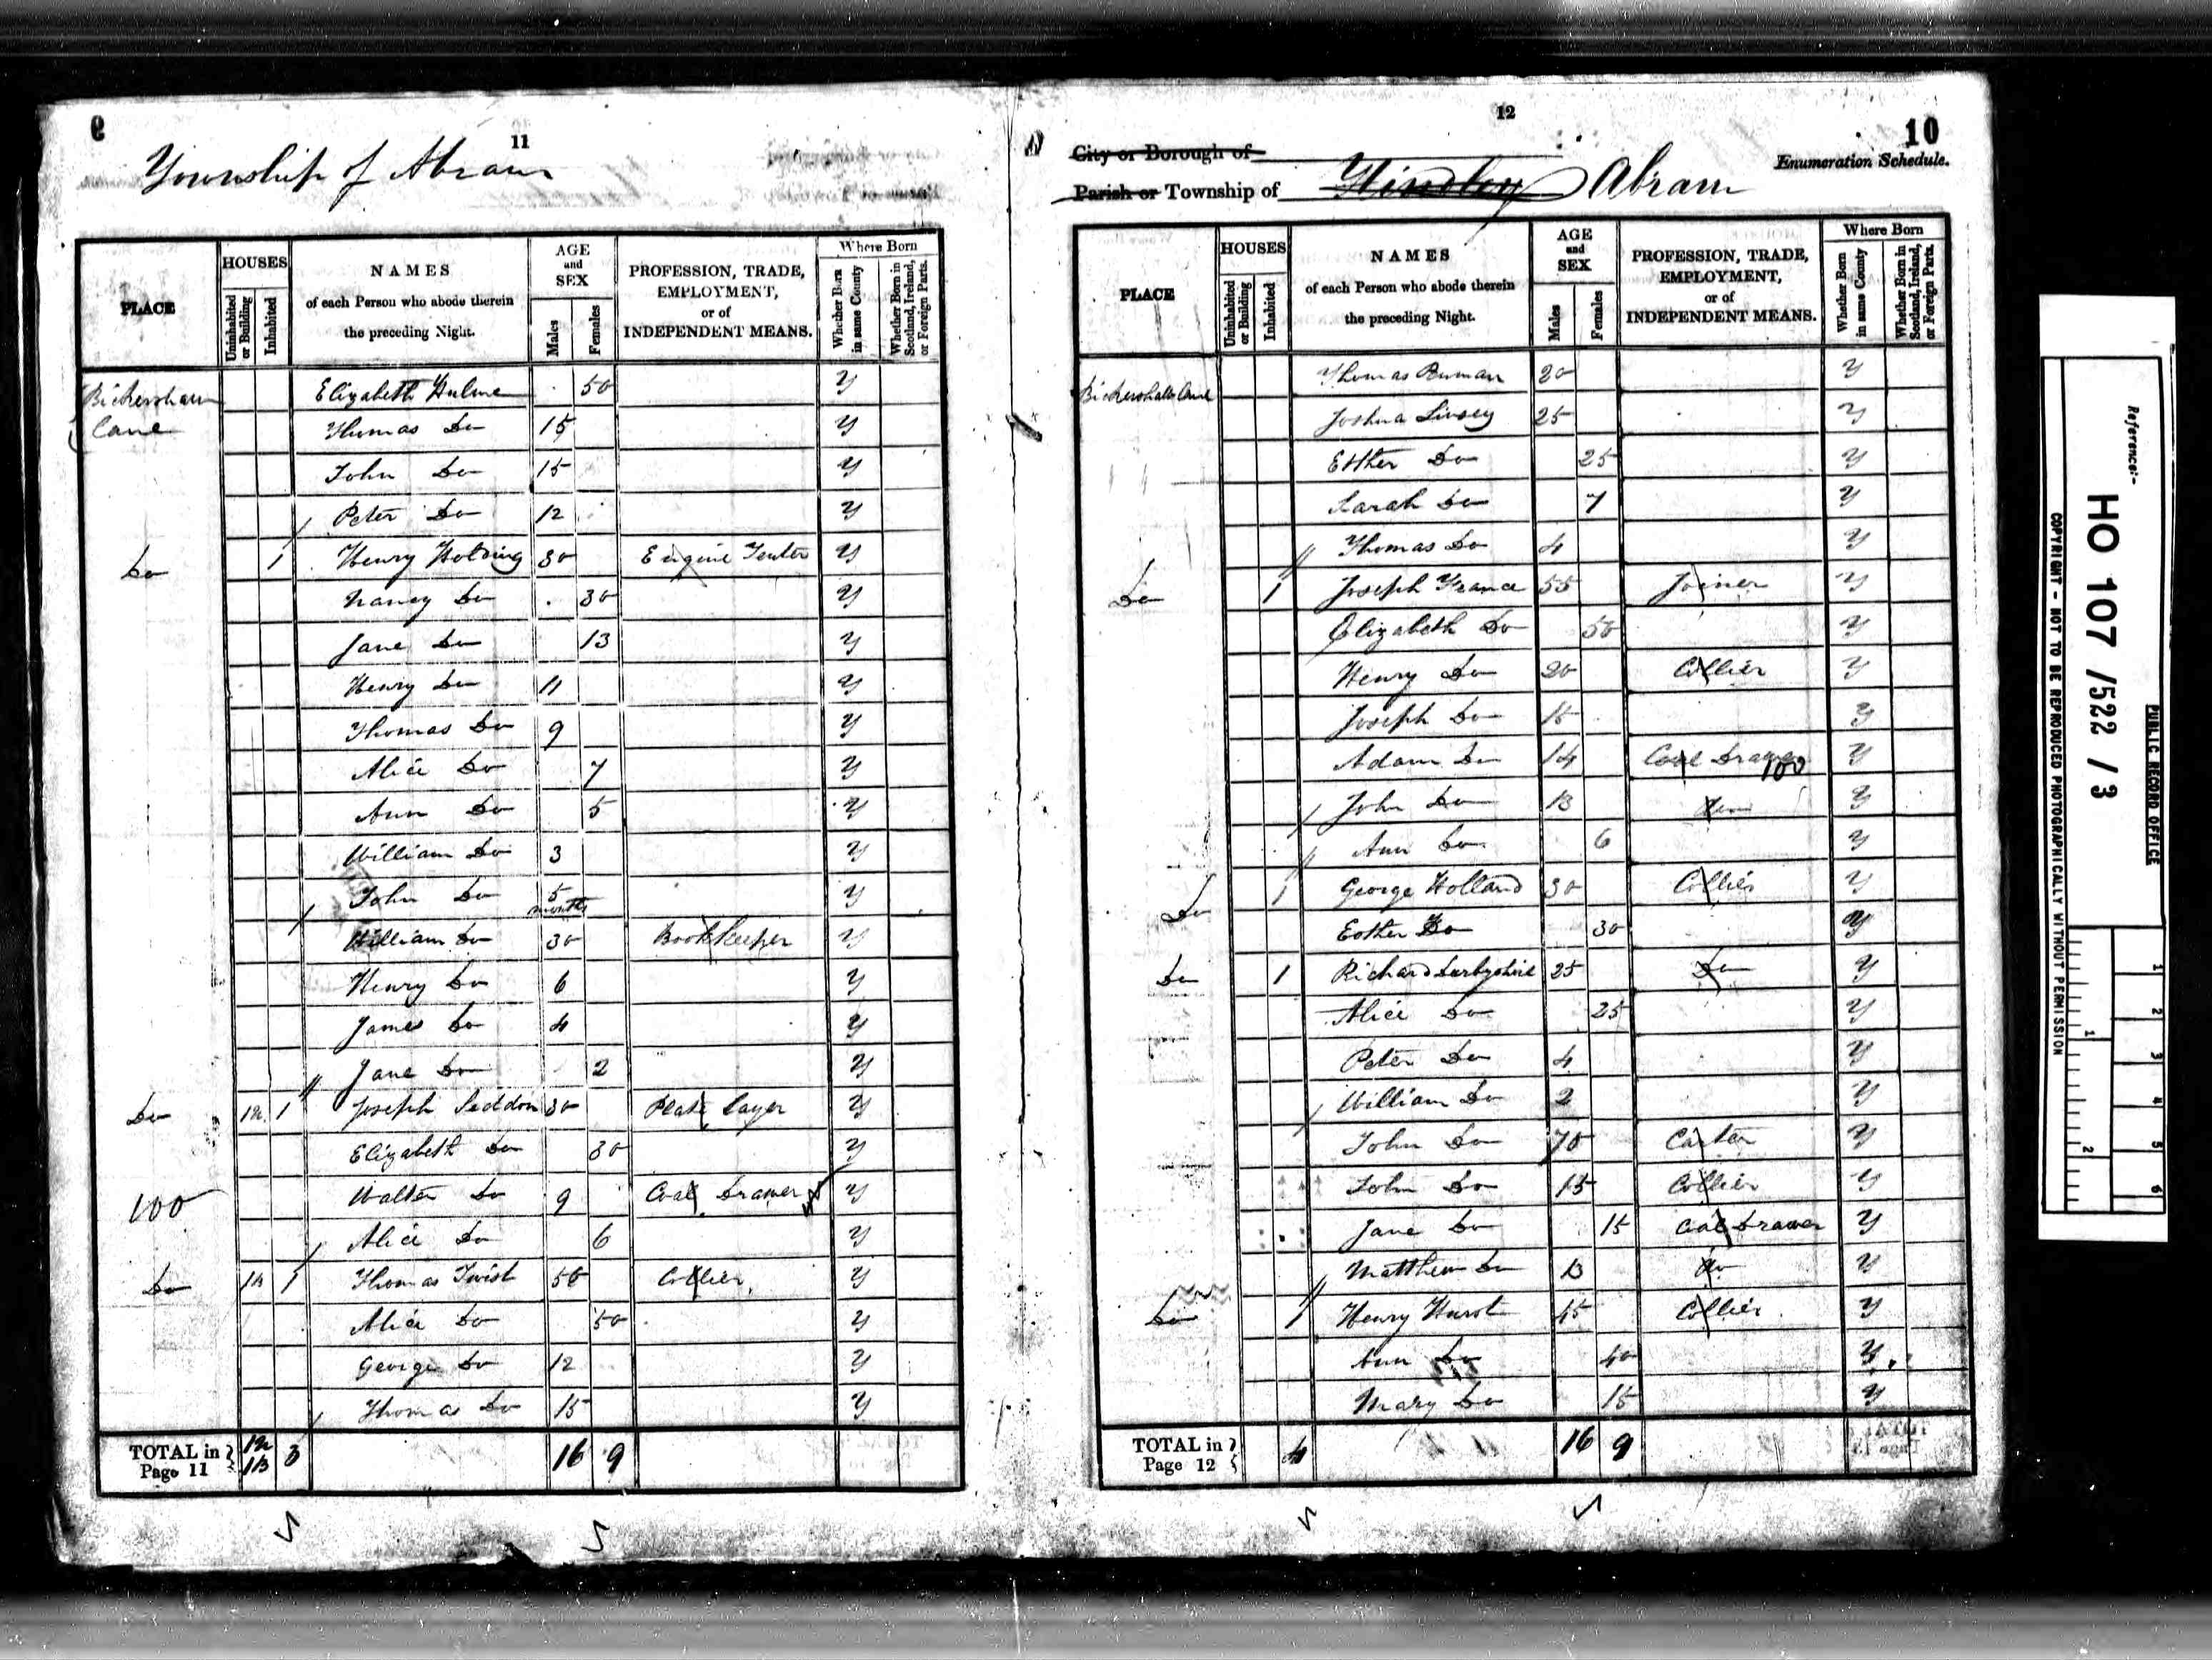 9
11
Township of Abram
PLACE
HOUSES
Uninhabited or Building
Inhabited
NAMES
of each Person who abode therein
the preceding Night.
AGE
and
SEX
Males
Females
PROFESSION, TRADE,
EMPLOYMENT,
or of
INDEPENDENT MEANS.
Where Born
Whether Born in same County
Whether Born in Scotland, Ireland, or Foreign Parts.
Bickersham Elizabeth Hulme 50 Y
Lane Thomas Do 15 Y
John Do 15 Y
Peter Do 12 Y
Do 1 Henry Holding 30 Engine Tenter Y
Nancy Do 30 Y
Jane Do 13 Y
Henry Do 11 Y
Thomas Do 9 Y
Alice Do 7 Y
Ann Do 5 Y
William Do 3 Y
John Do 5 months Y
William Do 30 Book Keeper Y
Henry Do 6 Y
James Do 4 Y
Jane Do 2 Y
Do 1 Joseph Seddon 30 Plate Layer Y
Elizabeth Do 30 Y
100 Walter Do 9 Coal Drawer Y
Alice Do 6 Y
Do 1 Thomas Twist 50 Collier Y
Alice Do 50 Y
George Do 12 Y
Thomas Do 15 Y
TOTAL in Page 11 3 16 9
12
10
City or Borough of
Enumeration Schedule.
Parish or Township of Hindley Abram
PLACE
HOUSES
Uninhabited or Building
Inhabited
NAMES
of each Person who abode therein
the preceding Night.
AGE
and
SEX
Males
Females
PROFESSION, TRADE,
EMPLOYMENT,
or of
INDEPENDENT MEANS.
Where Born
Whether Born in same County
Whether Born in Scotland, Ireland, or Foreign Parts.
Lane Thomas 20 Y
Joshua Livsey 25 Y
Esther Do 25 Y
Sarah Do 7 Y
Thomas Do 4 Y
Do 1 Joseph France 55 Joiner Y
Elizabeth Do 50 Y
Henry Do 20 Collier Y
Joseph Do 15 Y
Adam Do 14 Coal Drawer 100 Y
John Do 13 Do Y
Ann Do 6 Y
Do 1 George Holland 30 Collier Y
Esther Do 30 Y
Do 1 Richard Darbyshire 25 Do Y
Alice Do 25 Y
Peter Do 4 Y
William Do 2 Y
John Do 70 Carter Y
John Do 15 Collier Y
Jane Do 15 Coal Drawer Y
Matthew Do 13 Do Y
Do 1 Henry Hurst 45 Collier Y
Ann Do 40 Y
Mary Do 15 Y
TOTAL in Page 12 4 16 9
PUBLIC RECORD OFFICE
Reference:-
HO 107 /522 /3
COPYRIGHT - NOT TO BE REPRODUCED PHOTOGRAPHICALLY WITHOUT PERMISSION
1 2 3 4 5 6
1 2